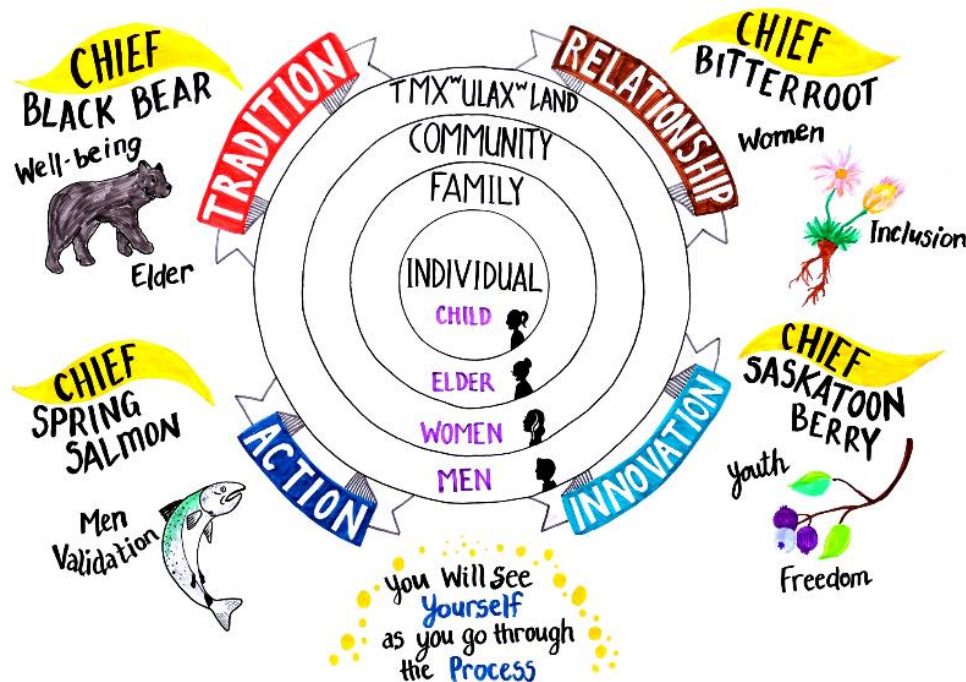 CHIEF
BLACK BEAR
Well-being
Elder
TRADITION
RELATIONSHIP
CHIEF
BITTERROOT
Women
Inclusion
TMXʷULAXʷ LAND
COMMUNITY
FAMILY
INDIVIDUAL
CHILD
ELDER
WOMEN
MEN
CHIEF
SPRING
SALMON
Men
Validation
ACTION
INNOVATION
CHIEF
SASKATOON
BERRY
youth
Freedom
you Will See
Yourself
as you go through
the Process